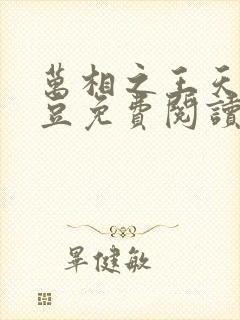 萬相之王天
豆免費閱讀
畢健敏